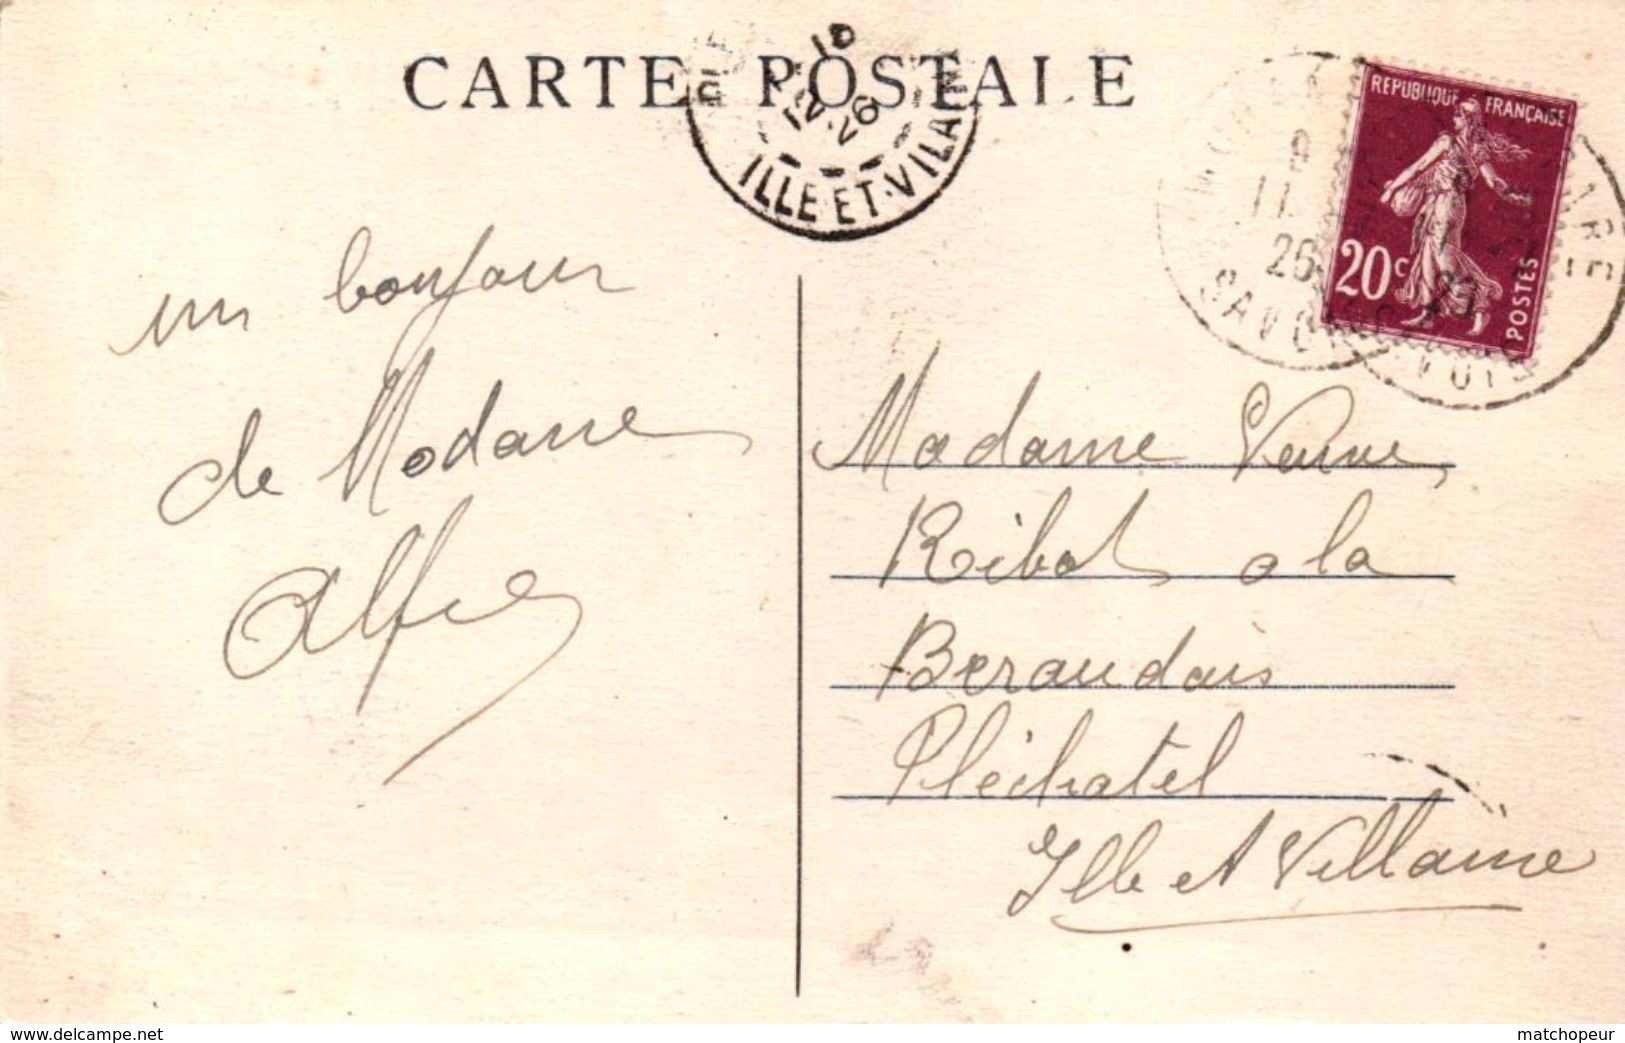 CARTE POSTALE
ILLE-ET-VILAINE
REPUBLIQUE FRANÇAISE
20c
POSTES
un bonjour
de Modane
Alfred
Madame Veuve
Ribot a la
Beraudais
Pléchatel
Ille et Villaine
www.delcampe.net
matchopeur